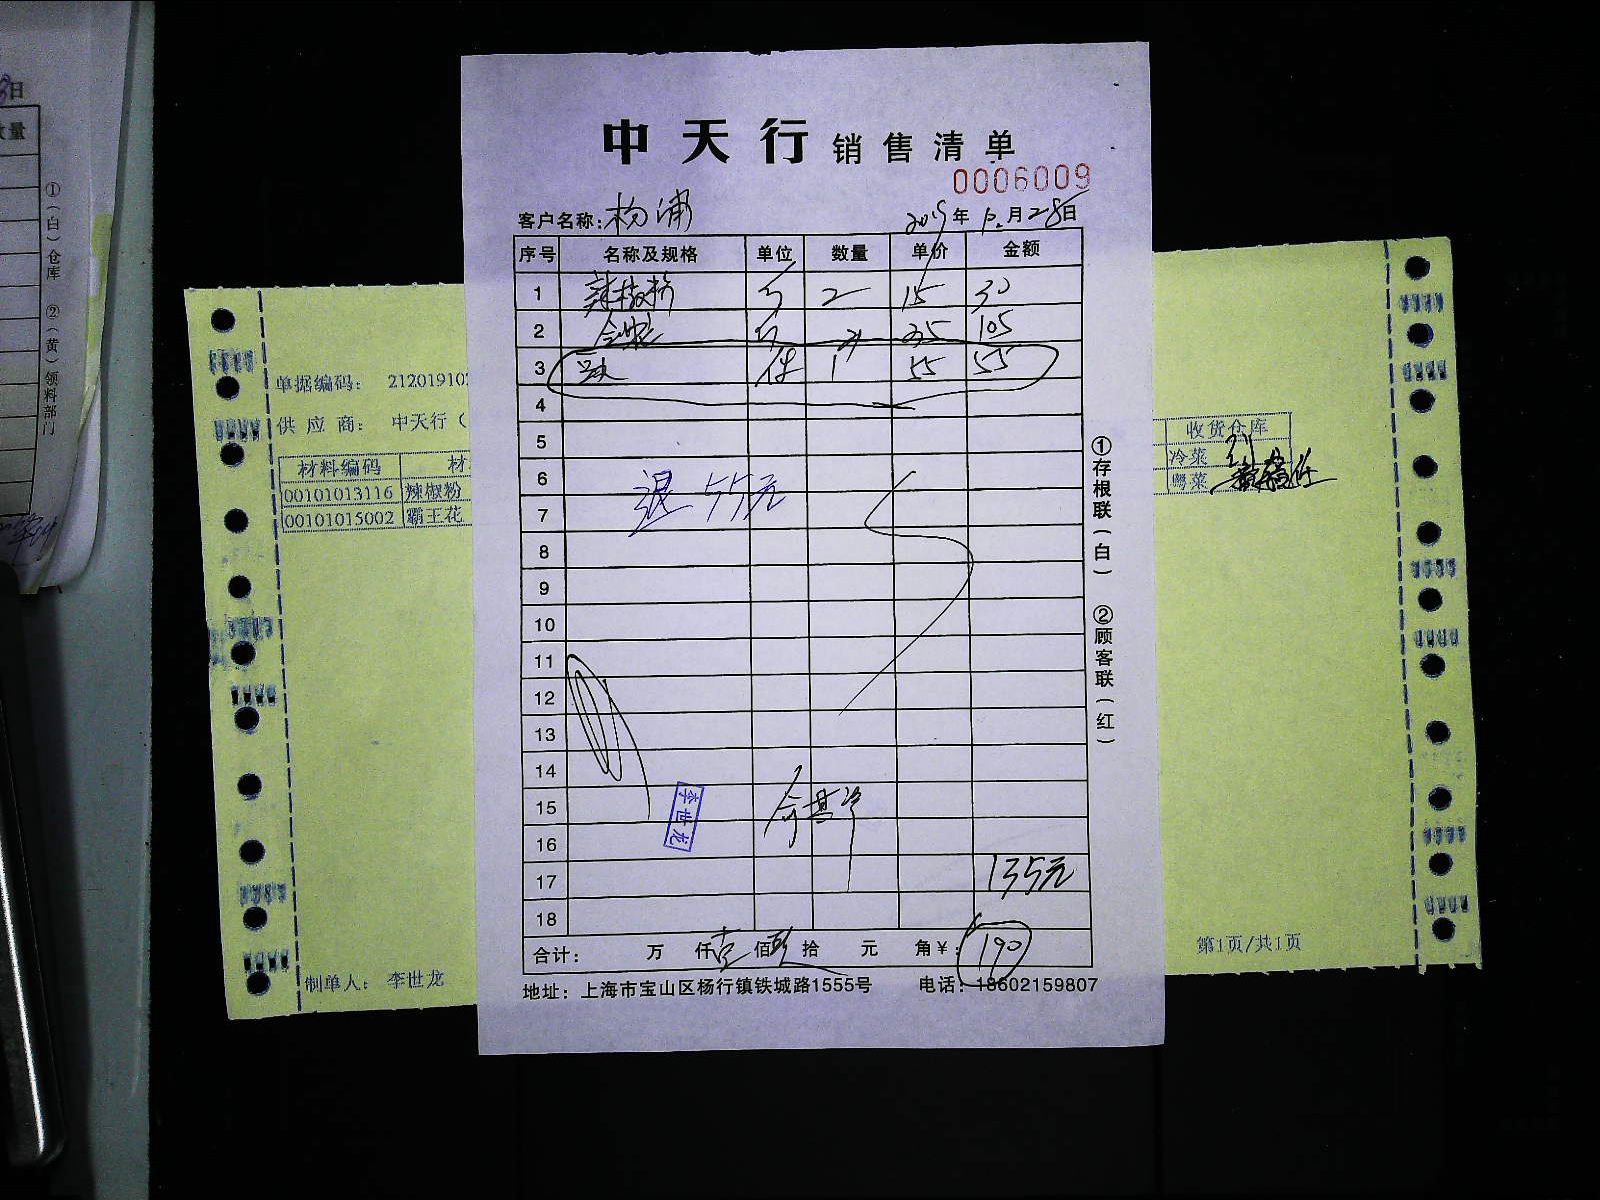 日
量
①（白）仓库 ②（黄）领料部门
中天行 销售清单
0006009
客户名称：杨浦 2019年10月28日
序号 名称及规格 单位 数量 单价 金额
1 辣椒粉 2 15 30
2 35 105
3 件 1 55 55
4
5
6
7
退 55元
8
9
10
11
12
13
14
15
16
17 135元
18
李世龙
合计： 万 仟壹佰玖拾 元 角 ¥：190
地址：上海市宝山区杨行镇铁城路1555号 电话：18602159807
①存根联（白） ②顾客联（红）
单据编码： 21201910
供应商： 中天行（
材料编码 材
00101013116 辣椒粉
00101015002 霸王花
制单人： 李世龙
收货仓库
冷菜
粤菜
第1页/共1页